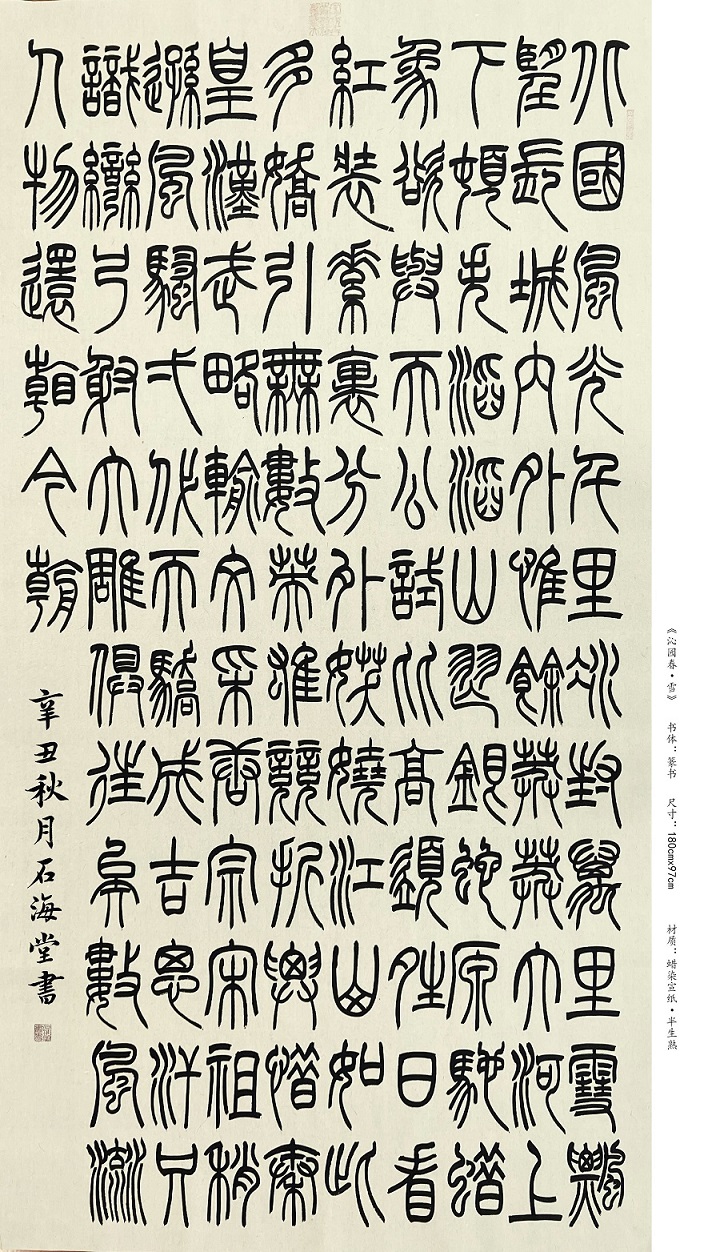 北國風光千里冰封萬里雪飄
望長城內外惟餘莽莽大河上
下頓失滔滔山舞銀蛇原馳蠟
象欲與天公試比高須晴日看
紅裝素裹分外妖嬈江山如此
多嬌引無數英雄競折腰惜秦
皇漢武略輸文采唐宗宋祖稍
遜風騷弌代天驕成吉思汗只
識彎弓射大雕俱往矣數風流
人物還看今朝
辛丑秋月石海堂書
《沁园春·雪》 书体：篆书 尺寸：180cmx97cm 材质：蜡染宣纸·半生熟